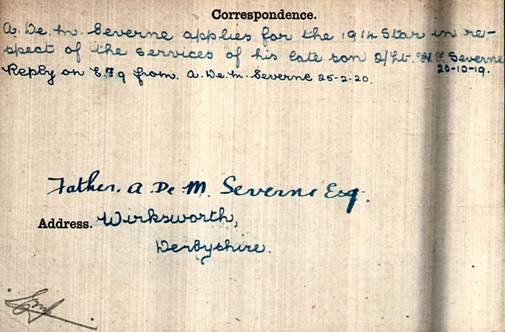 Correspondence.
A. De. M. Severne applies for the 1914 Star in re-
spect of the services of his late son 2/Lt. H. S. Severne
20-10-19.
Reply on E79 from. A. De. M. Severne 25-2-20.
Father. A De M. Severne Esq.
Address. Wirksworth,
Derbyshire.